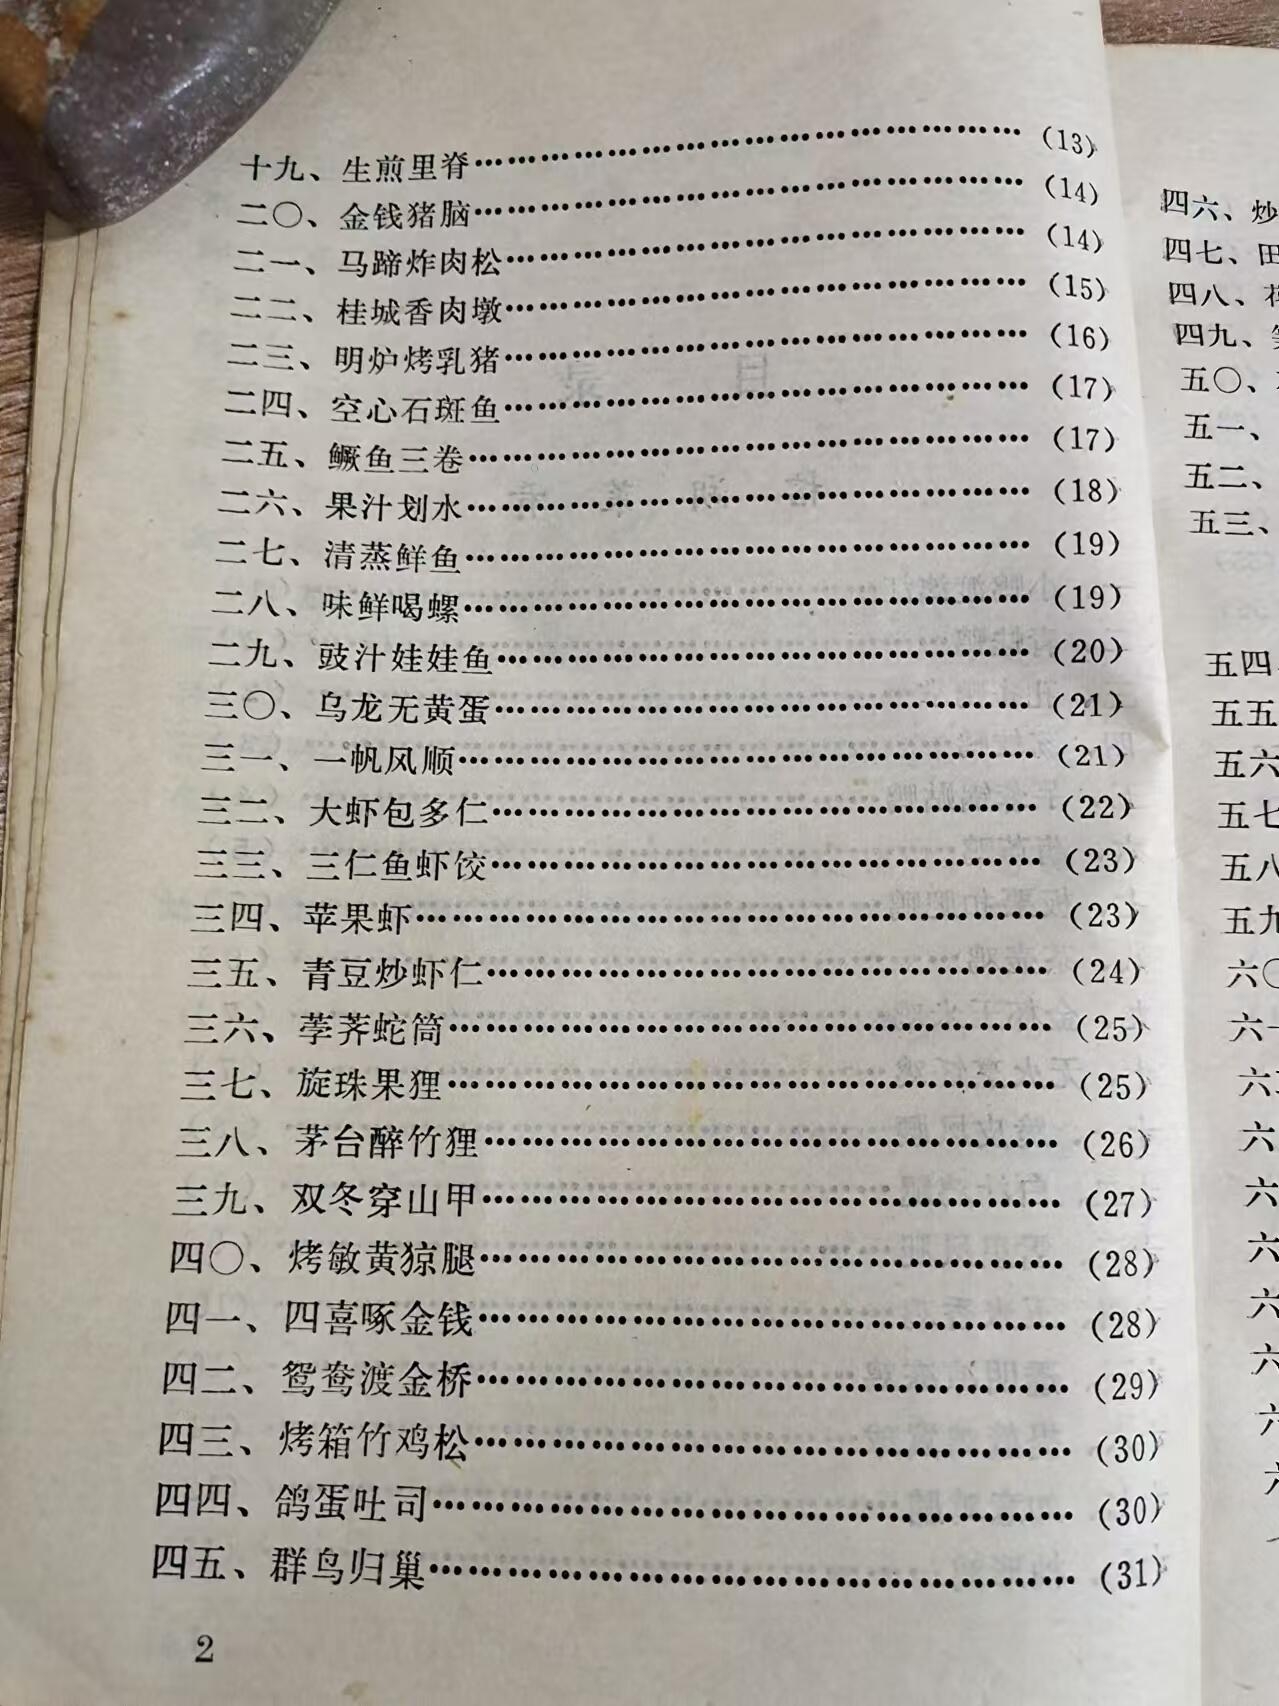 十九、生煎里脊…………………………………………(13)
二〇、金钱猪脑…………………………………………(14)
二一、马蹄炸肉松………………………………………(14)
二二、桂城香肉墩………………………………………(15)
二三、明炉烤乳猪………………………………………(16)
二四、空心石斑鱼………………………………………(17)
二五、鳜鱼三卷…………………………………………(17)
二六、果汁划水…………………………………………(18)
二七、清蒸鲜鱼…………………………………………(19)
二八、味鲜喝螺…………………………………………(19)
二九、豉汁娃娃鱼………………………………………(20)
三〇、乌龙无黄蛋………………………………………(21)
三一、一帆风顺…………………………………………(21)
三二、大虾包多仁………………………………………(22)
三三、三仁鱼虾饺………………………………………(23)
三四、苹果虾……………………………………………(23)
三五、青豆炒虾仁………………………………………(24)
三六、荸荠蛇筒…………………………………………(25)
三七、旋珠果狸…………………………………………(25)
三八、茅台醉竹狸………………………………………(26)
三九、双冬穿山甲………………………………………(27)
四〇、烤敏黄猄腿………………………………………(28)
四一、四喜啄金钱………………………………………(28)
四二、鸳鸯渡金桥………………………………………(29)
四三、烤箱竹鸡松………………………………………(30)
四四、鸽蛋吐司…………………………………………(30)
四五、群鸟归巢…………………………………………(31)
2
四六、炒
四七、田
四八、
四九、
五〇、
五一、
五二、
五三、
五四
五五
五六
五七
五八
五九
六〇
六
六
六
六
六
六
六
六